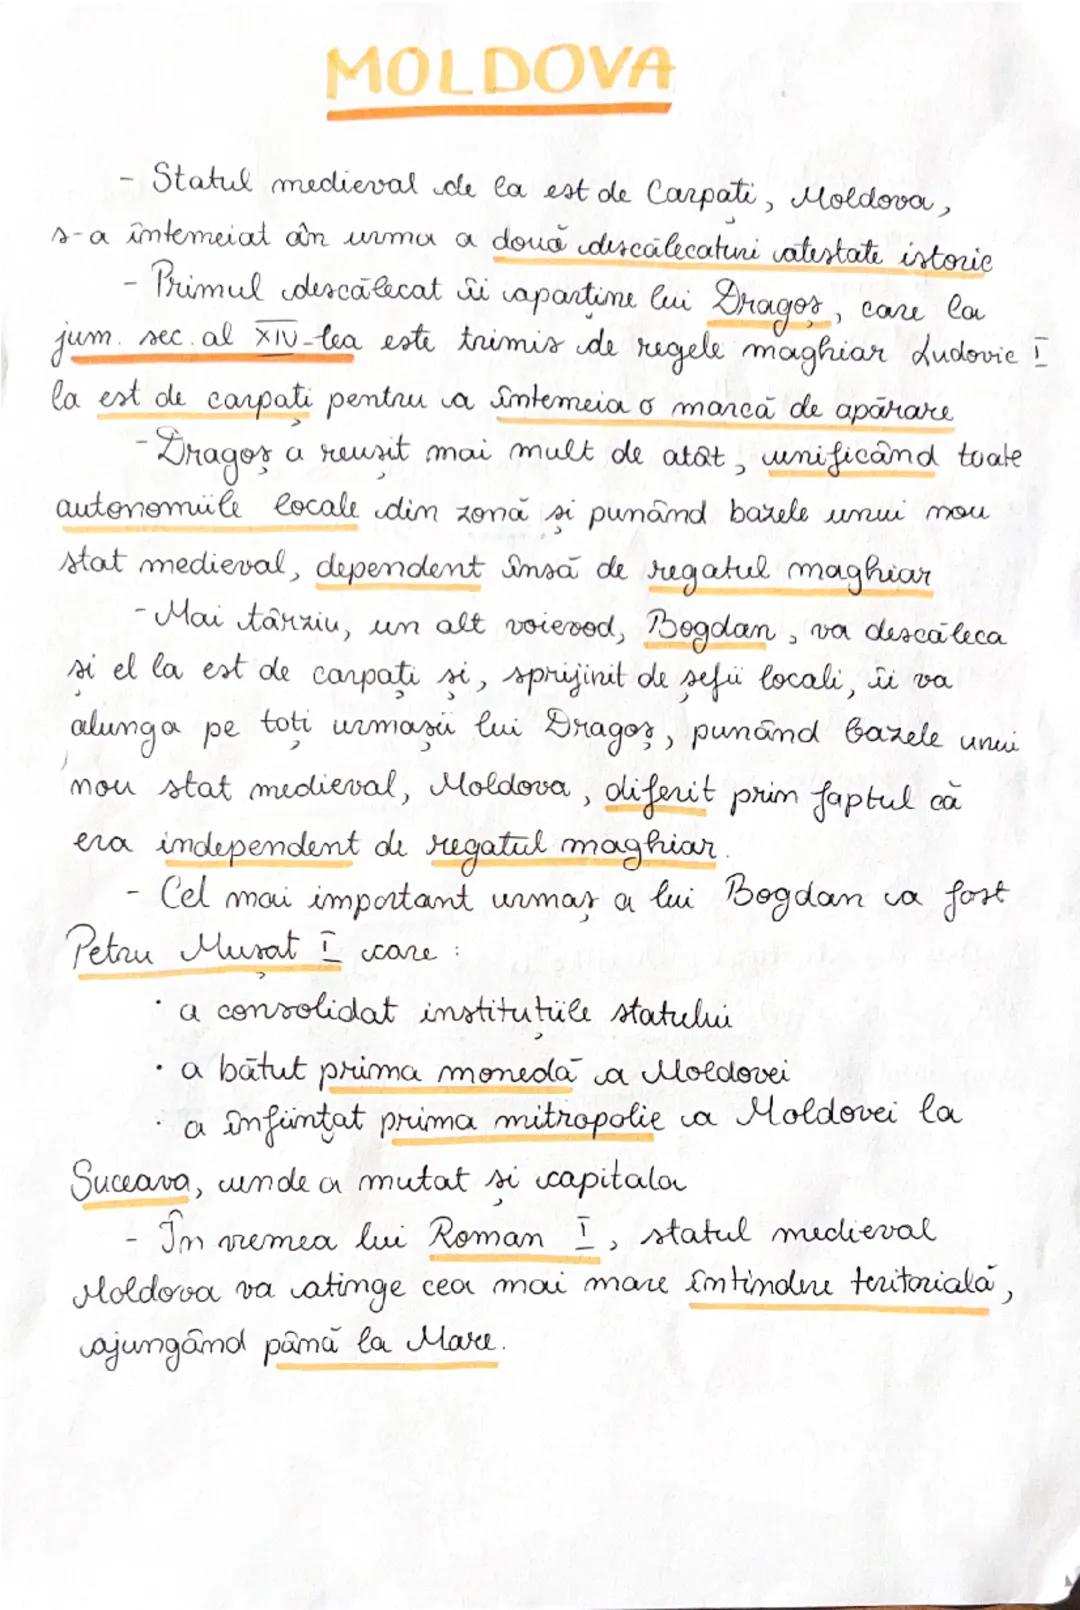 MOLDOVA
- Statul medieval de la est de Carpați, Moldova,
s-a întemeiat în urma a două descălecaturi atestate istoric
- Primul descălecat îi aparține lui Dragoș, care la
jum. sec. al XIV-lea este trimis de regele maghiar Ludovic I
la est de carpați pentru a întemeia o marcă de apărare
- Dragoș a reușit mai mult de atât, unificând toate
autonomiile locale din zonă și punând bazele unui nou
stat medieval, dependent însă de regatul maghiar
- Mai târziu, un alt voievod, Bogdan, va descăleca
și el la est de carpați și, sprijinit de șefii locali, îi va
alunga pe toți urmașii lui Dragoș, punând bazele unui
nou stat medieval, Moldova, diferit prin faptul că
era independent de regatul maghiar.
- Cel mai important urmaș a lui Bogdan a fost
Petru Mușat I care :
· a consolidat instituțiile statului
· a bătut prima monedă a Moldovei
· a înființat prima mitropolie a Moldovei la
Suceava, unde a mutat și capitala
- În vremea lui Roman I, statul medieval
Moldova va atinge cea mai mare întindere teritorială,
ajungând până la Mare.